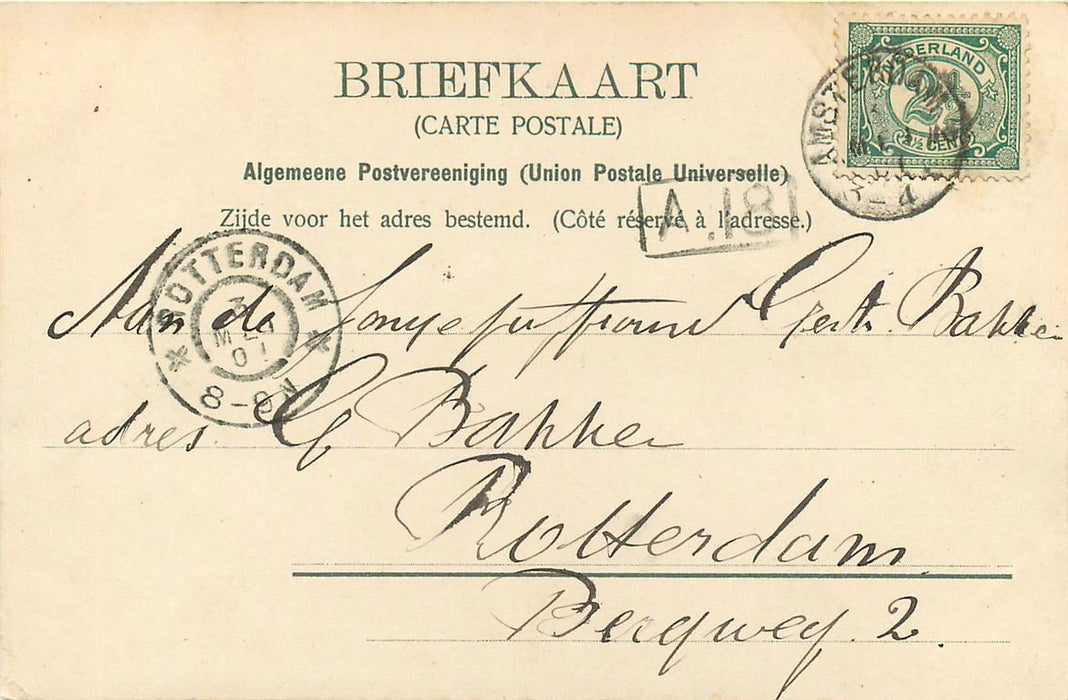 BRIEFKAART
(CARTE POSTALE)
Algemeene Postvereeniging (Union Postale Universelle)
Zijde voor het adres bestemd. (Côté réservé à l'adresse.)
NEDERLAND
2½
2½ CENT
AMSTERDAM
A.18
ROTTERDAM
3
MEI
01
8-9N
Aan de Jonge juffrouw Gert. Bakker
adres. G Bakker
Rotterdam
Bergweg. 2.